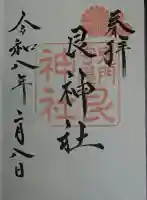 奉拝
艮神社
令和八年二月八日
艮
神社